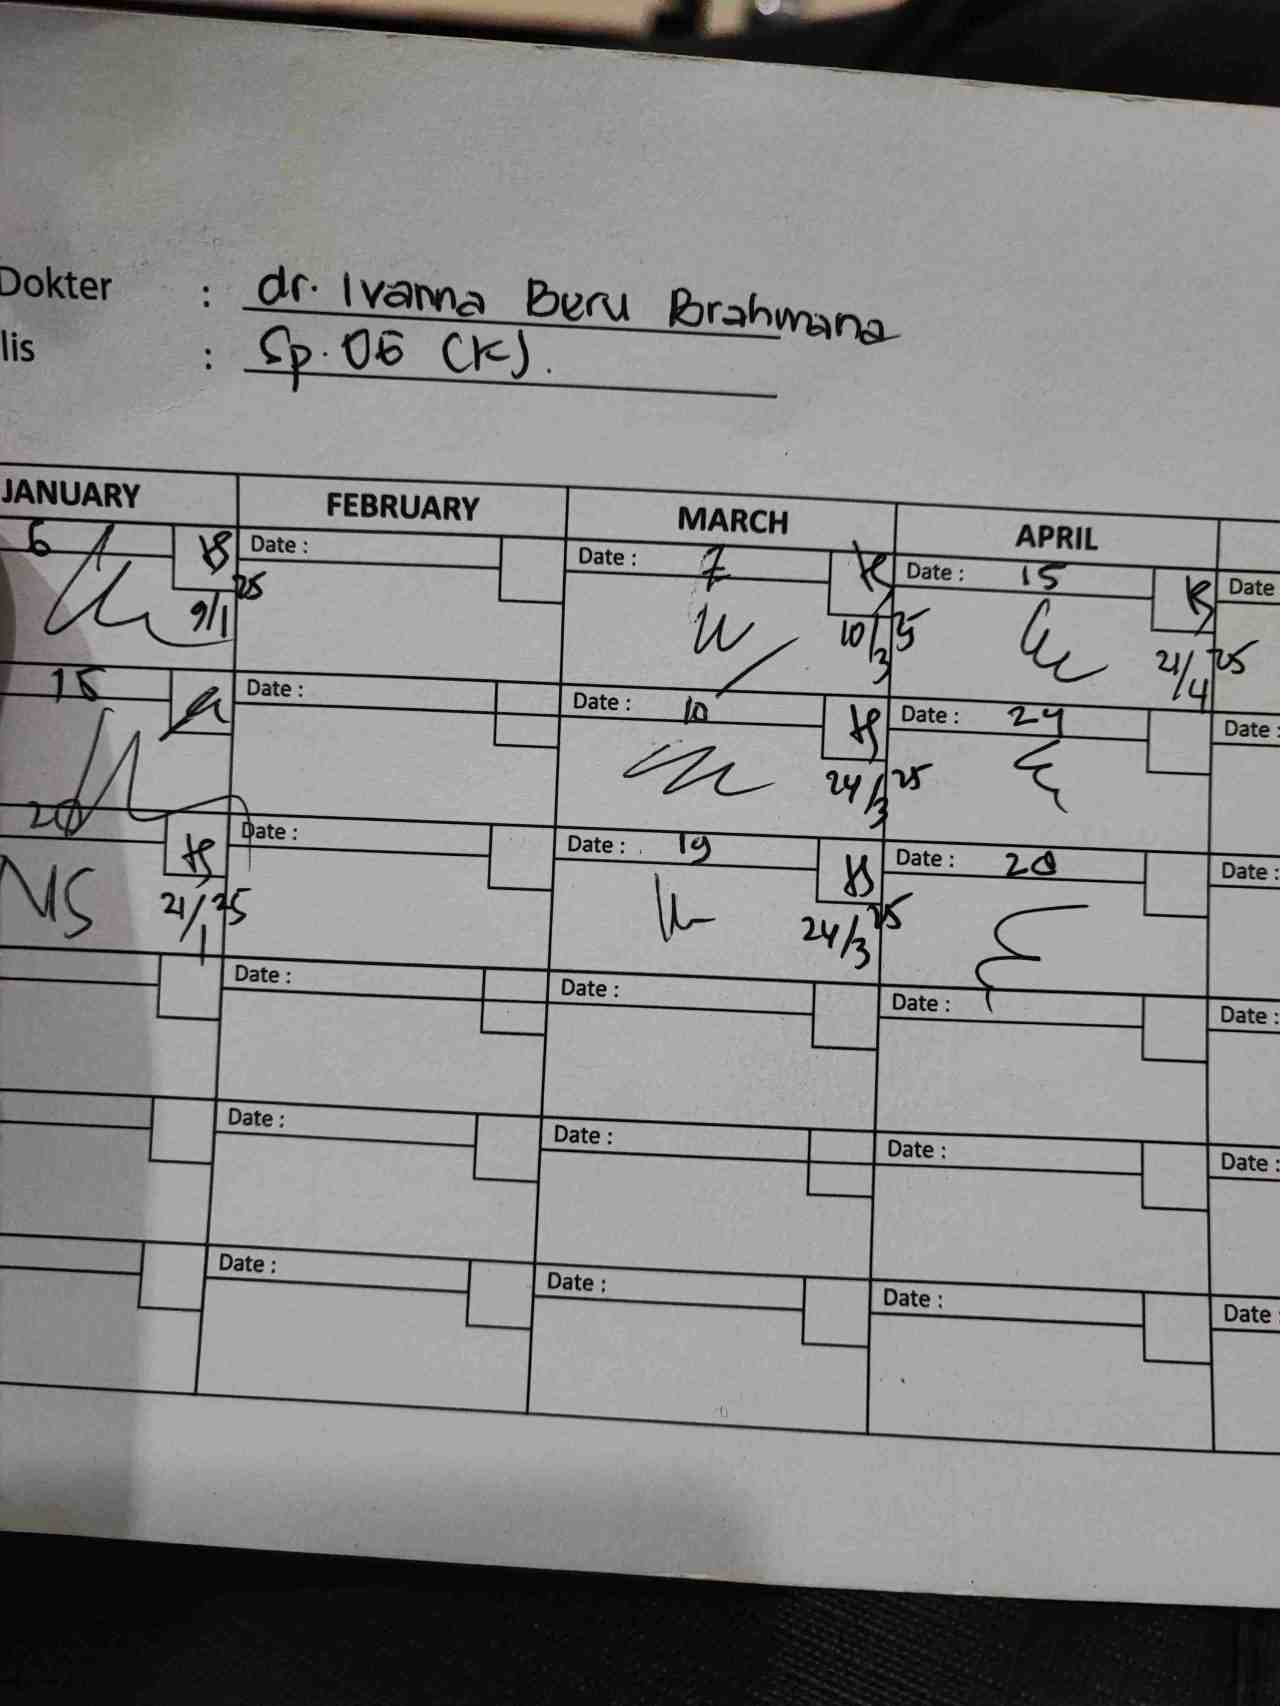 Dokter : dr. Ivanna Beru Brahmana
lis : Sp. OG (K).
JANUARY FEBRUARY MARCH APRIL
6 Date : Date : 7 Date : 15 Date
9/1 25 10/3 25 21/4 25
15 Date : Date : 10 Date : 24 Date :
24/3 25
20 Date : Date : 19 Date : 28 Date :
NS 21/1 25 24/3 25
Date : Date : Date : Date :
Date : Date : Date : Date :
Date : Date : Date : Date :